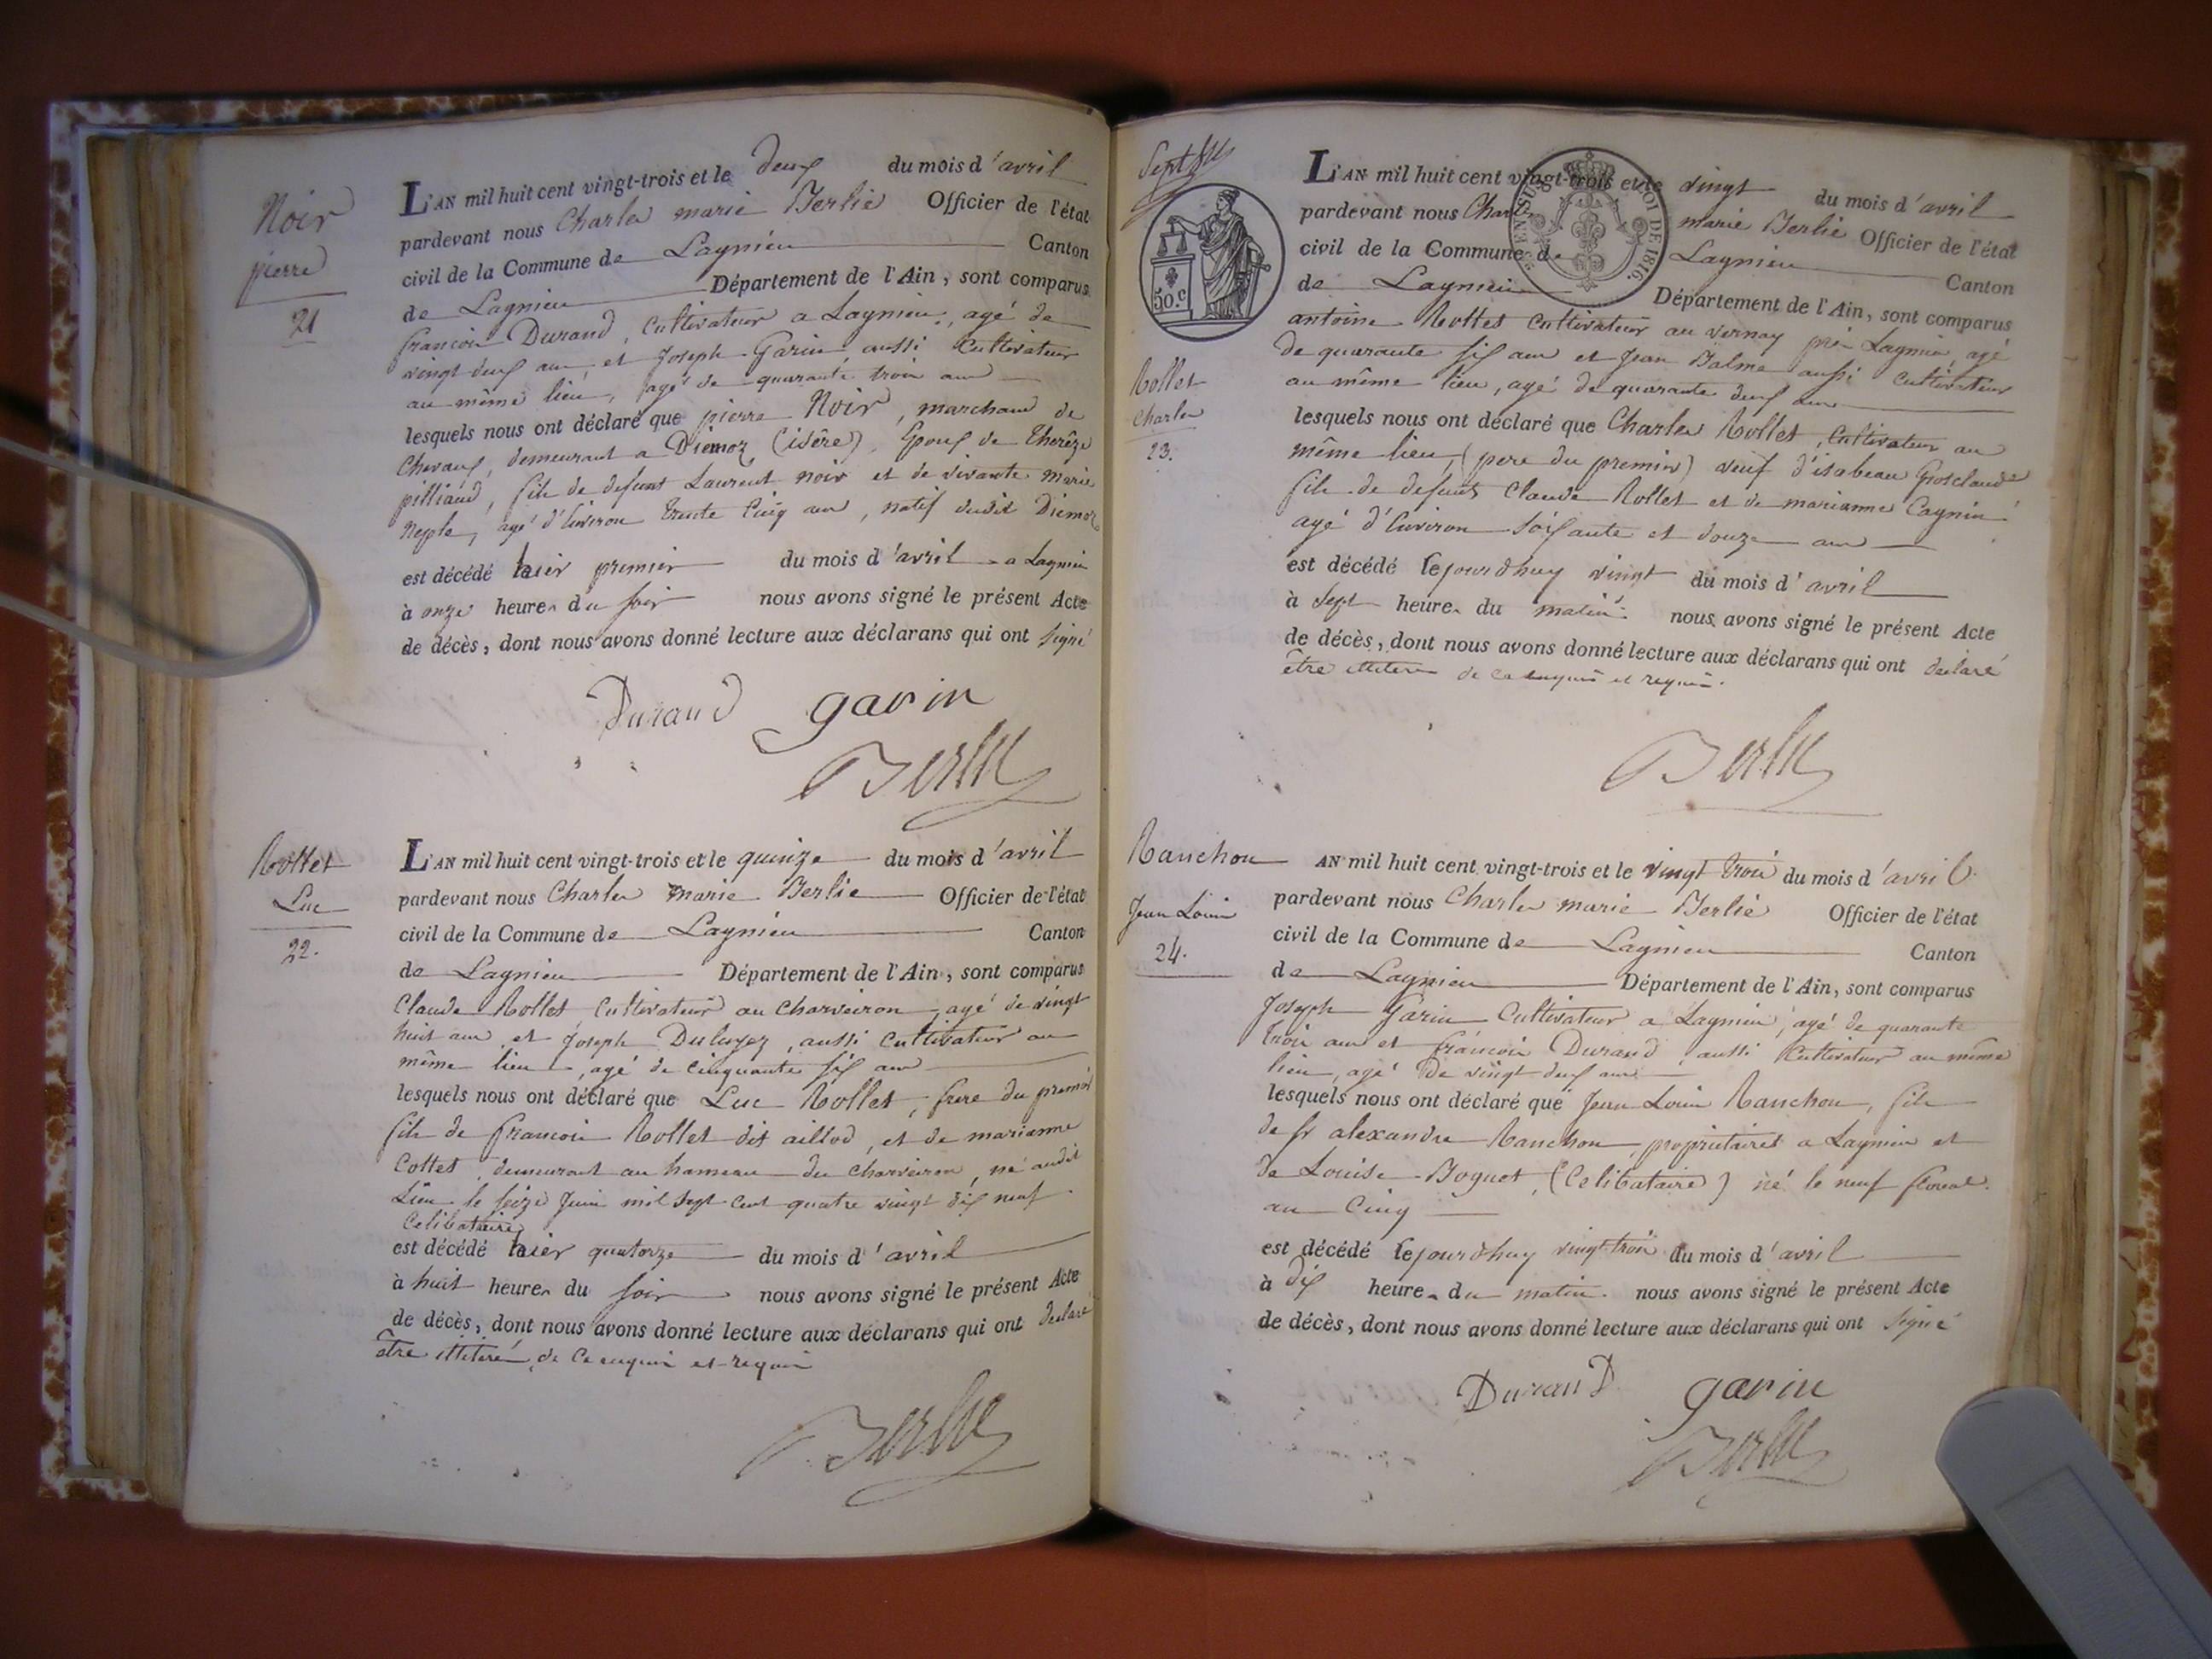 Noir
pierre
21
L'AN mil huit cent vingt-trois et le deux du mois d'avril
pardevant nous Charles marie Berlie Officier de l'état
civil de la Commune de Lagnieu Canton
de Lagnieu Département de l'Ain, sont comparus
francois Durand, Cultivateur a Lagnieu, agé de
vingt deux ans, et Joseph Garin aussi Cultivateur
au même lieu, agé de quarante trois ans
lesquels nous ont déclaré que pierre Noir, marchand de
Chevaux, demeurant a Diemoz (isére), Epoux de Therèze
pilliaud, fils de defunt Laurent noir et de vivante marie
Neple, agé d'Environ trente Cinq ans, natif dudit Diemoz
est décédé hier premier du mois d'avril a Lagnieu
à onze heures du soir nous avons signé le présent Acte
de décès, dont nous avons donné lecture aux déclarans qui ont signé
Durand garin
Berlie
Rollet
Luc
22.
L'AN mil huit cent vingt-trois et le quinze du mois d'avril
pardevant nous Charles marie Berlie Officier de l'état
civil de la Commune de Lagnieu Canton
de Lagnieu Département de l'Ain, sont comparus
Claude Rollet Cultivateur au Charveiron, agé de vingt
huit ans, et Joseph aussi Cultivateur au
même lieu, agé de cinquante six ans
lesquels nous ont déclaré que Luc Rollet, frere du premier
fils de francois Rollet dit aillod, et de marianne
Cottet, demeurant au hameau du Charveiron, né audit
Lieu le seize Juin mil sept cent quatre vingt dix neuf
Celibataire
est décédé hier quatorze du mois d'avril
à huit heures du soir nous avons signé le présent Acte
de décès, dont nous avons donné lecture aux déclarans qui ont declaré
être illiterés de ce enquis et requis
Berlie
Sept
50.C
EN SUS ROI DE 1816.
Rollet
Charles
23.
L'AN mil huit cent vingt-trois et le vingt du mois d'avril
pardevant nous Charles marie Berlie Officier de l'état
civil de la Commune de Lagnieu Canton
de Lagnieu Département de l'Ain, sont comparus
antoine Rollet Cultivateur au vernay près Lagnieu, agé
de quarante six ans et Jean Balme aussi Cultivateur
au même lieu, agé de quarante deux ans
lesquels nous ont déclaré que Charles Rollet, Cultivateur au
même lieu, (pere du premier) veuf d'isabeau Grosclaude
fils de defunts Claude Rollet et de marianne Cagnin
agé d'Environ soixante et douze ans
est décédé cejourdhuy vingt du mois d'avril
à sept heures du matin. nous avons signé le présent Acte
de décès, dont nous avons donné lecture aux déclarans qui ont declaré
être illiterés de ce enquis et requis.
Berlie
Ranchon
Jean Louis
24.
AN mil huit cent vingt-trois et le vingt trois du mois d'avril
pardevant nous Charles marie Berlié Officier de l'état
civil de la Commune de Lagnieu Canton
de Lagnieu Département de l'Ain, sont comparus
Joseph Garin Cultivateur a Lagnieu, agé de quarante
trois ans et francois Durand aussi Cultivateur au même
lieu, agé de vingt deux ans
lesquels nous ont déclaré que Jean Louis Ranchon, fils
de Sr alexandre Ranchon, propriétaires a Lagnieu et
de Louise Boguet, (Celibataire) né le neuf floreal
an Cinq
est décédé cejourdhuy vingt trois du mois d'avril
à dix heures du matin. nous avons signé le présent Acte
de décès, dont nous avons donné lecture aux déclarans qui ont signé
Durand garin
Berlie